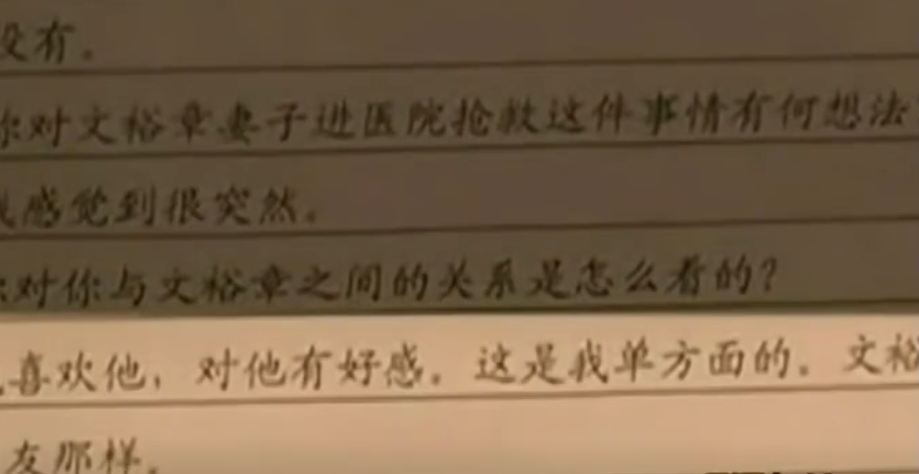 没有。
你对文裕章妻子进医院抢救这件事情有何想法
我感觉到很突然。
你对你与文裕章之间的关系是怎么看的？
喜欢他，对他有好感。这是我单方面的。文裕
友那样。